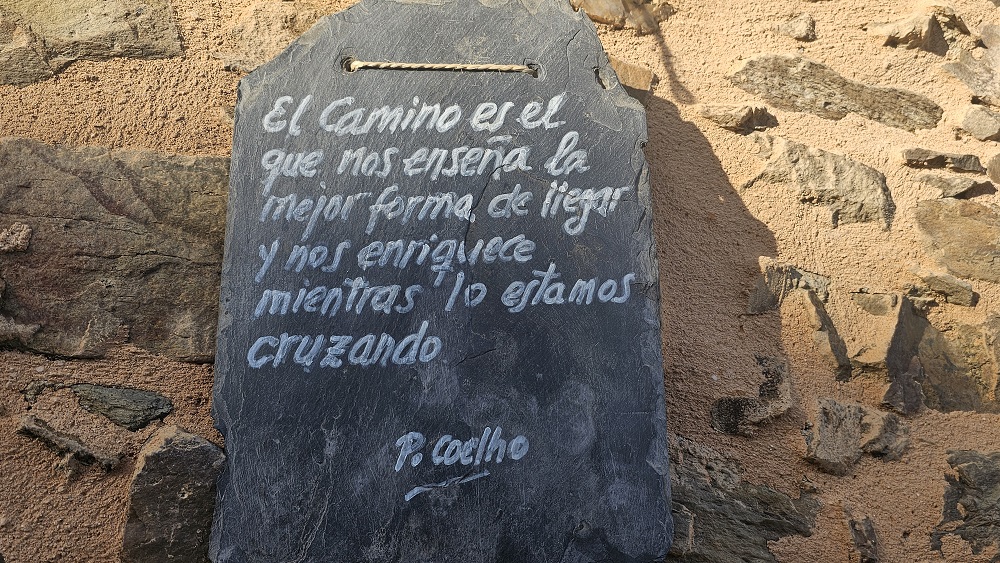 El Camino es el
que nos enseña la
mejor forma de llegar
y nos enriquece
mientras lo estamos
cruzando
P. Coelho